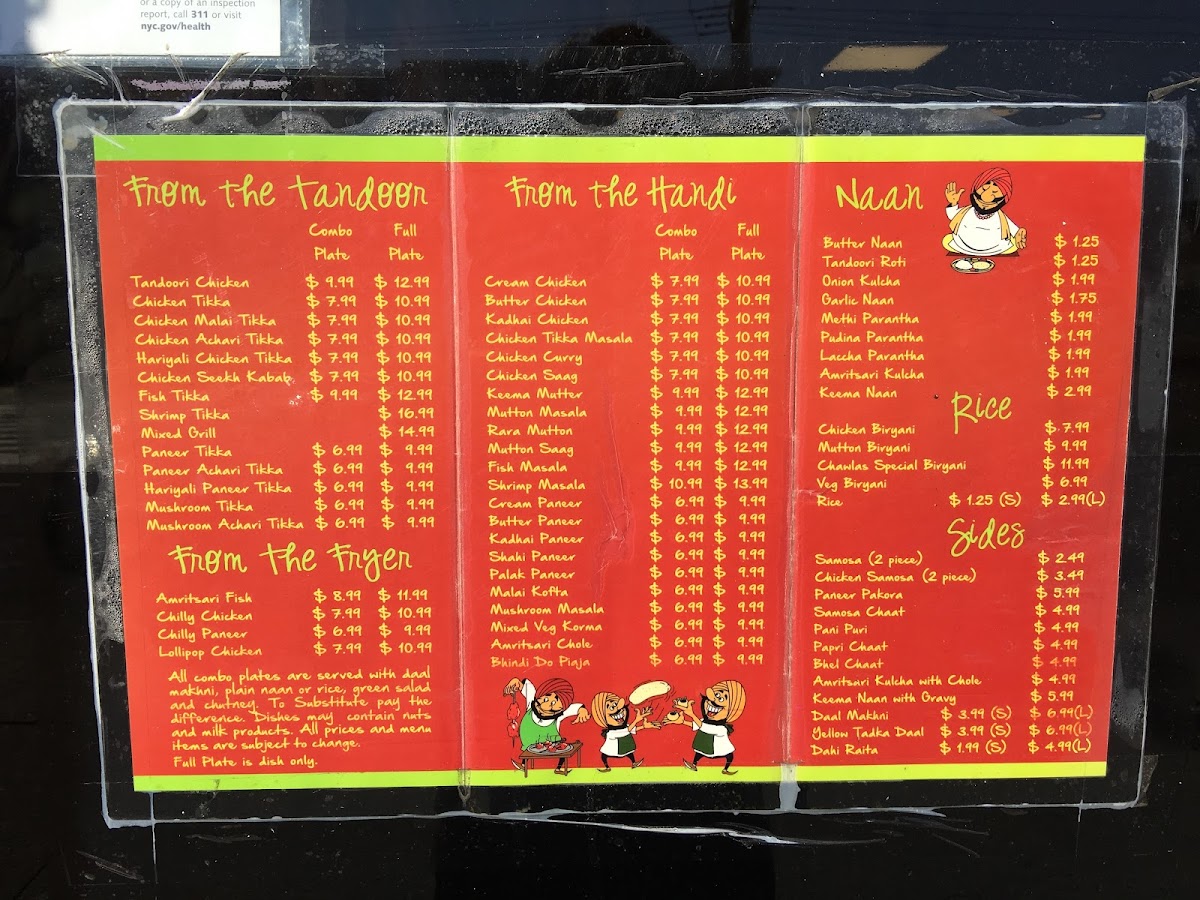 or a copy of an inspection
report, call 311 or visit
nyc.gov/health
From the Tandoor
Combo Full
Plate Plate
Tandoori Chicken $ 9.99 $ 12.99
Chicken Tikka $ 7.99 $ 10.99
Chicken Malai Tikka $ 7.99 $ 10.99
Chicken Achari Tikka $ 7.99 $ 10.99
Hariyali Chicken Tikka $ 7.99 $ 10.99
Chicken Seekh Kabab $ 7.99 $ 10.99
Fish Tikka $ 9.99 $ 12.99
Shrimp Tikka $ 16.99
Mixed Grill $ 14.99
Paneer Tikka $ 6.99 $ 9.99
Paneer Achari Tikka $ 6.99 $ 9.99
Hariyali Paneer Tikka $ 6.99 $ 9.99
Mushroom Tikka $ 6.99 $ 9.99
Mushroom Achari Tikka $ 6.99 $ 9.99
From the Fryer
Amritsari Fish $ 8.99 $ 11.99
Chilly Chicken $ 7.99 $ 10.99
Chilly Paneer $ 6.99 $ 9.99
Lollipop Chicken $ 7.99 $ 10.99
All combo plates are served with daal
makhni, plain naan or rice, green salad
and chutney. To Substitute pay the
difference. Dishes may contain nuts
and milk products. All prices and menu
items are subject to change.
Full Plate is dish only.
From the Handi
Combo Full
Plate Plate
Cream Chicken $ 7.99 $ 10.99
Butter Chicken $ 7.99 $ 10.99
Kadhai Chicken $ 7.99 $ 10.99
Chicken Tikka Masala $ 7.99 $ 10.99
Chicken Curry $ 7.99 $ 10.99
Chicken Saag $ 7.99 $ 10.99
Keema Mutter $ 9.99 $ 12.99
Mutton Masala $ 9.99 $ 12.99
Rara Mutton $ 9.99 $ 12.99
Mutton Saag $ 9.99 $ 12.99
Fish Masala $ 9.99 $ 12.99
Shrimp Masala $ 10.99 $ 13.99
Cream Paneer $ 6.99 $ 9.99
Butter Paneer $ 6.99 $ 9.99
Kadhai Paneer $ 6.99 $ 9.99
Shahi Paneer $ 6.99 $ 9.99
Palak Paneer $ 6.99 $ 9.99
Malai Kofta $ 6.99 $ 9.99
Mushroom Masala $ 6.99 $ 9.99
Mixed Veg Korma $ 6.99 $ 9.99
Amritsari Chole $ 6.99 $ 9.99
Bhindi Do Piaja $ 6.99 $ 9.99
Naan
Butter Naan $ 1.25
Tandoori Roti $ 1.25
Onion Kulcha $ 1.99
Garlic Naan $ 1.75
Methi Parantha $ 1.99
Pudina Parantha $ 1.99
Laccha Parantha $ 1.99
Amritsari Kulcha $ 1.99
Keema Naan $ 2.99
Rice
Chicken Biryani $ 7.99
Mutton Biryani $ 9.99
Chawlas Special Biryani $ 11.99
Veg Biryani $ 6.99
Rice $ 1.25 (S) $ 2.99(L)
Sides
Samosa (2 piece) $ 2.49
Chicken Samosa (2 piece) $ 3.49
Paneer Pakora $ 5.99
Samosa Chaat $ 4.99
Pani Puri $ 4.99
Papri Chaat $ 4.99
Bhel Chaat $ 4.99
Amritsari Kulcha with Chole $ 4.99
Keema Naan with Gravy $ 5.99
Daal Makhni $ 3.99 (S) $ 6.99(L)
Yellow Tadka Daal $ 3.99 (S) $ 6.99(L)
Dahi Raita $ 1.99 (S) $ 4.99(L)